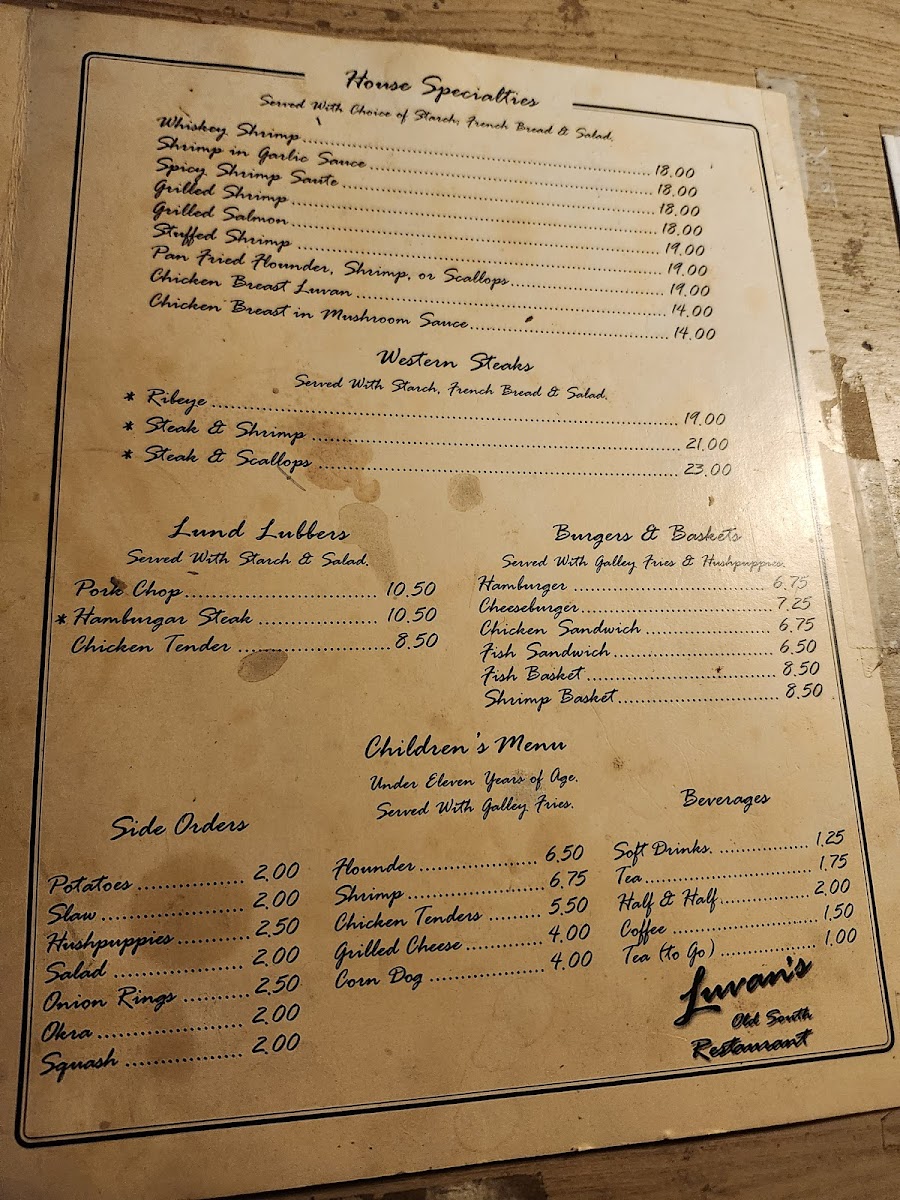 House Specialties
Served With Choice of Starch, French Bread & Salad.
Whiskey Shrimp 18.00
Shrimp in Garlic Sauce 18.00
Spicy Shrimp Saute 18.00
Grilled Shrimp 18.00
Grilled Salmon 19.00
Stuffed Shrimp 19.00
Pan Fried Flounder, Shrimp, or Scallops 19.00
Chicken Breast Luvan 14.00
Chicken Breast in Mushroom Sauce 14.00
Western Steaks
Served With Starch, French Bread & Salad.
* Ribeye 19.00
* Steak & Shrimp 21.00
* Steak & Scallops 23.00
Lund Lubbers
Served With Starch & Salad.
Pork Chop 10.50
* Hamburgar Steak 10.50
Chicken Tender 8.50
Burgers & Baskets
Served With Galley Fries & Hushpuppies.
Hamburger 6.75
Cheeseburger 7.25
Chicken Sandwich 6.75
Fish Sandwich 6.50
Fish Basket 8.50
Shrimp Basket 8.50
Side Orders
Potatoes 2.00
Slaw 2.00
Hushpuppies 2.50
Salad 2.00
Onion Rings 2.50
Okra 2.00
Squash 2.00
Children's Menu
Under Eleven Years of Age.
Served With Galley Fries.
Flounder 6.50
Shrimp 6.75
Chicken Tenders 5.50
Grilled Cheese 4.00
Corn Dog 4.00
Beverages
Soft Drinks. 1.25
Tea 1.75
Half & Half 2.00
Coffee 1.50
Tea (to Go) 1.00
Luvan's
Old South
Restaurant